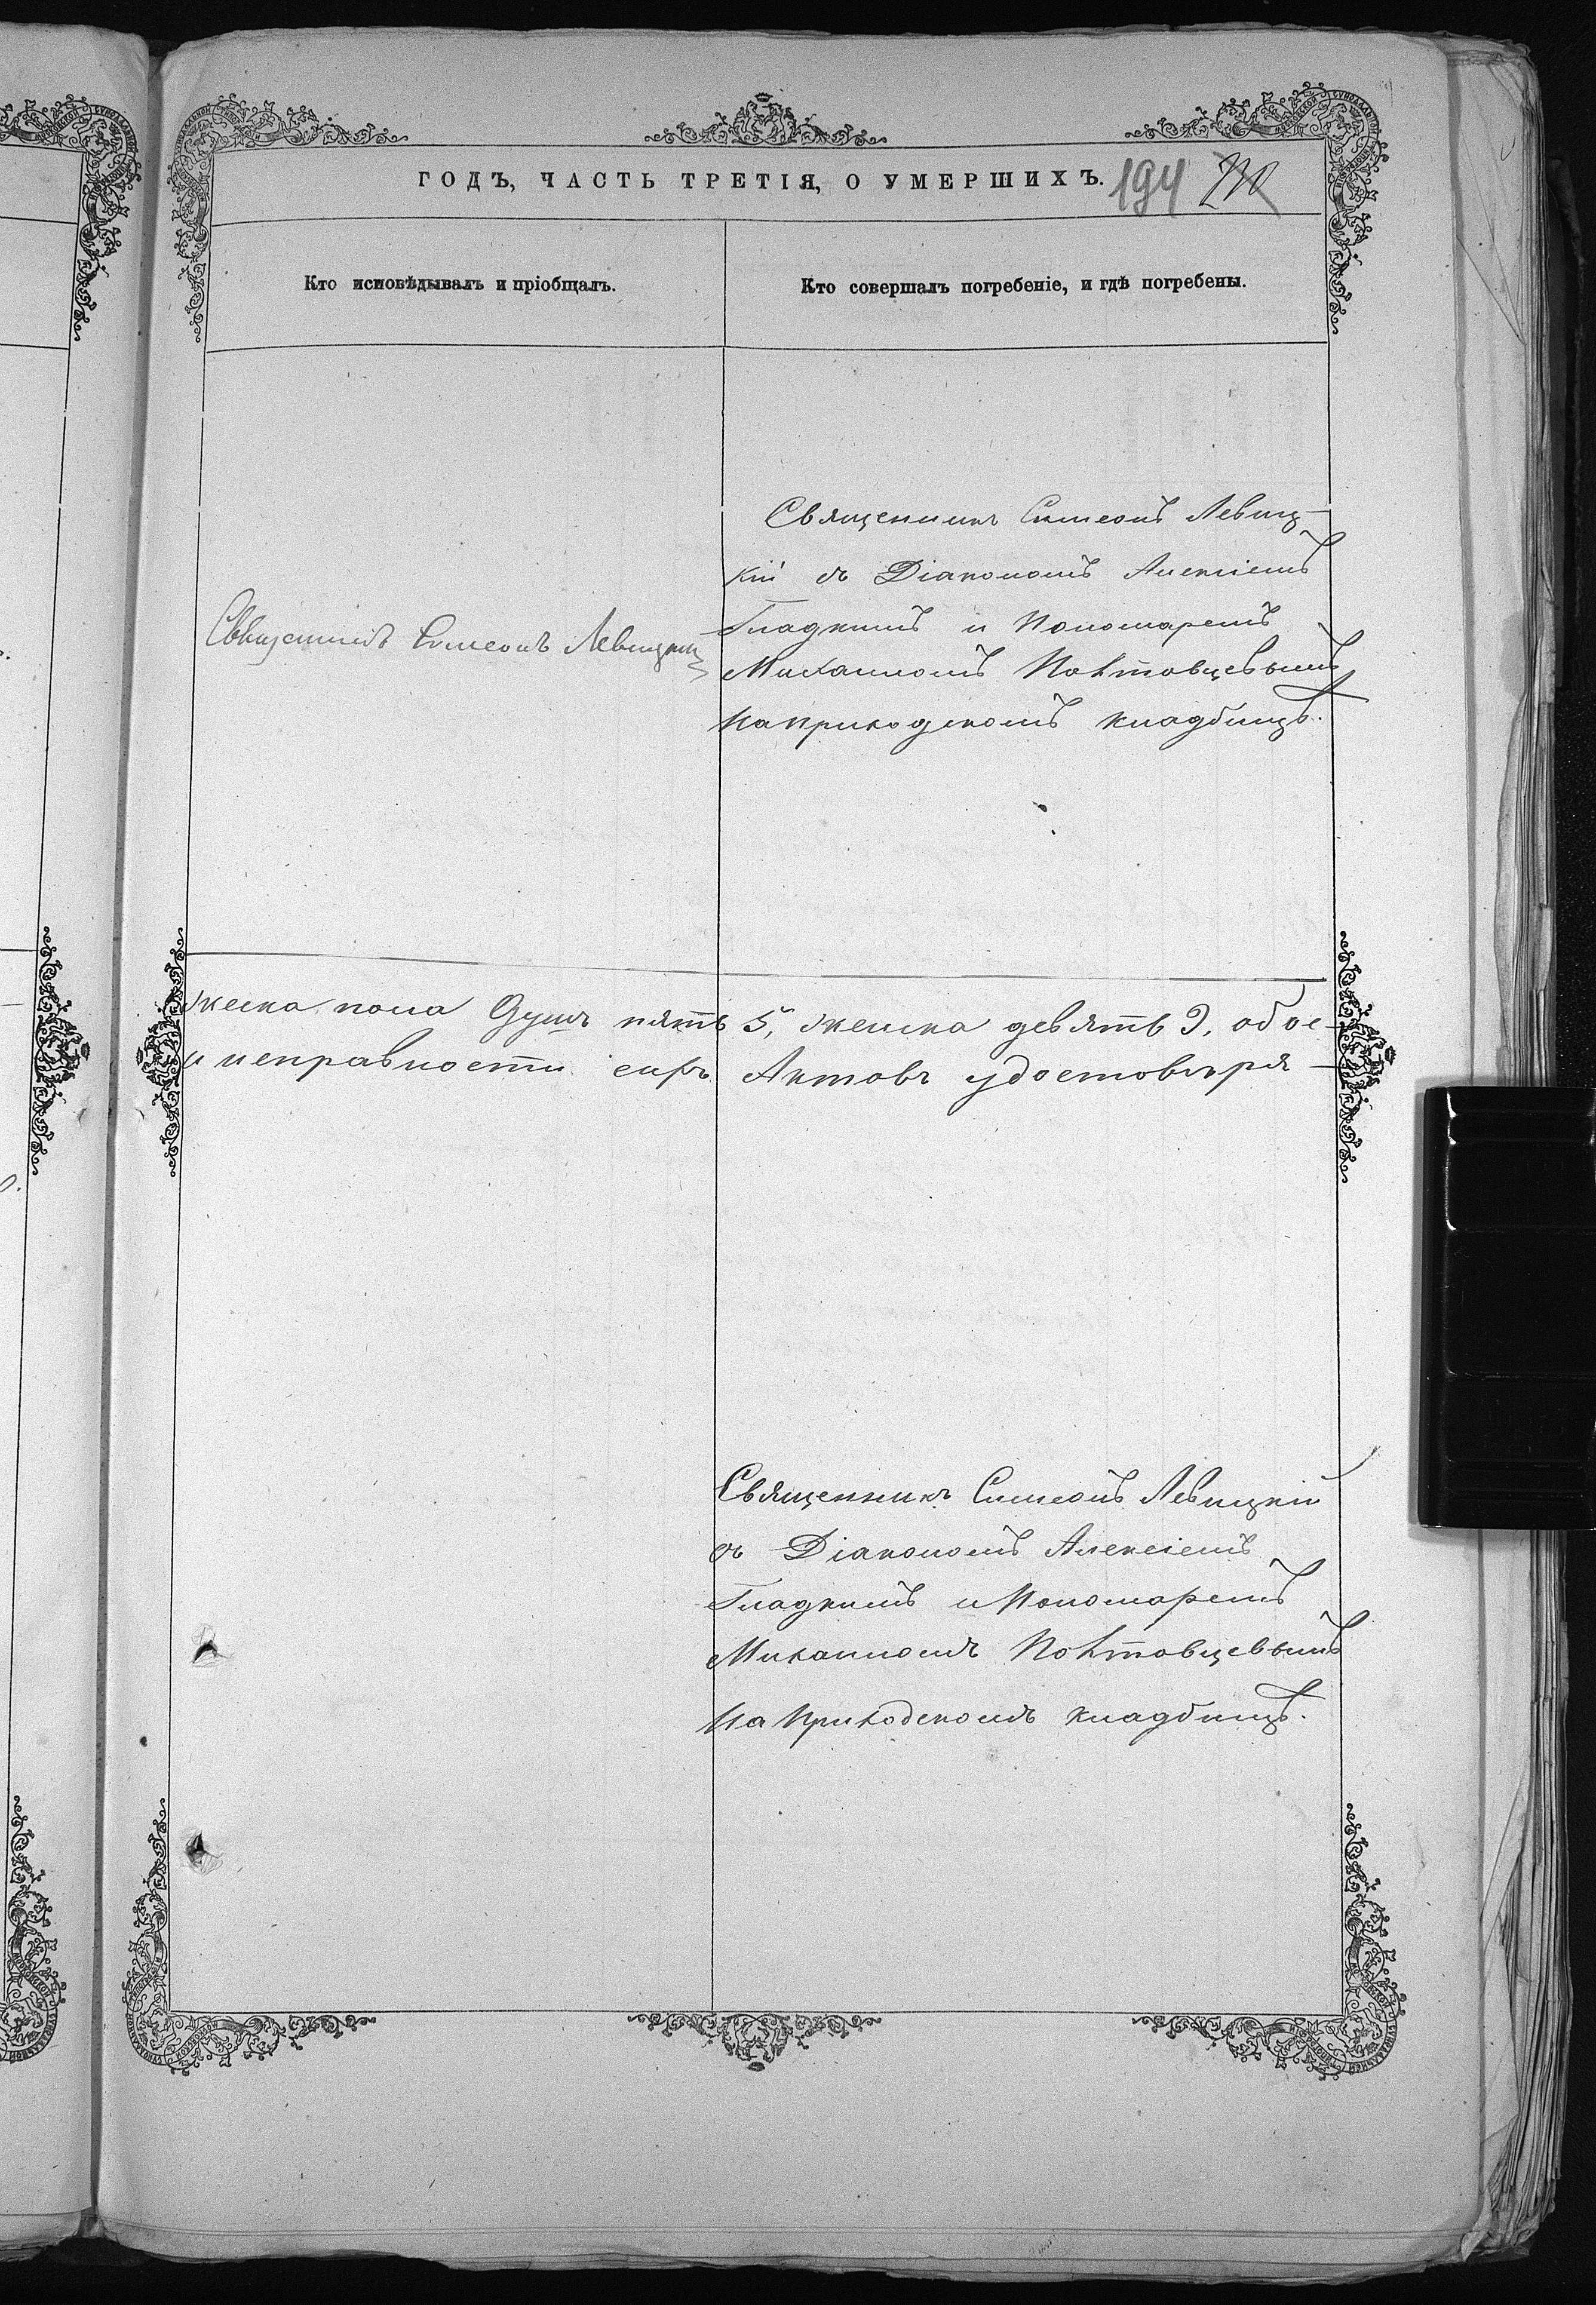 ГОДЪ, ЧАСТЬ ТРЕТІЯ, О УМЕРШИХЪ. 194 210
Кто исповѣдывалъ и пріобщалъ.
Кто совершалъ погребеніе, и гдѣ погребены.
Священникъ Симеонъ Левиц-
кій съ Діакономъ Алексіемъ
Гладкимъ и Пономаремъ
Михаиломъ Полтовцевымъ
на приходскомъ кладбищѣ.
Священникъ Симеонъ Левицкій
жеска пола душъ пять 5, женска девять 9, обое-
и исправности сихъ Актовъ удостовѣря-
Священникъ Симеонъ Левицкій
съ Діакономъ Алексіемъ
Гладкимъ и Пономаремъ
Михаиломъ Полтовцевымъ
на Приходскомъ кладбищѣ.